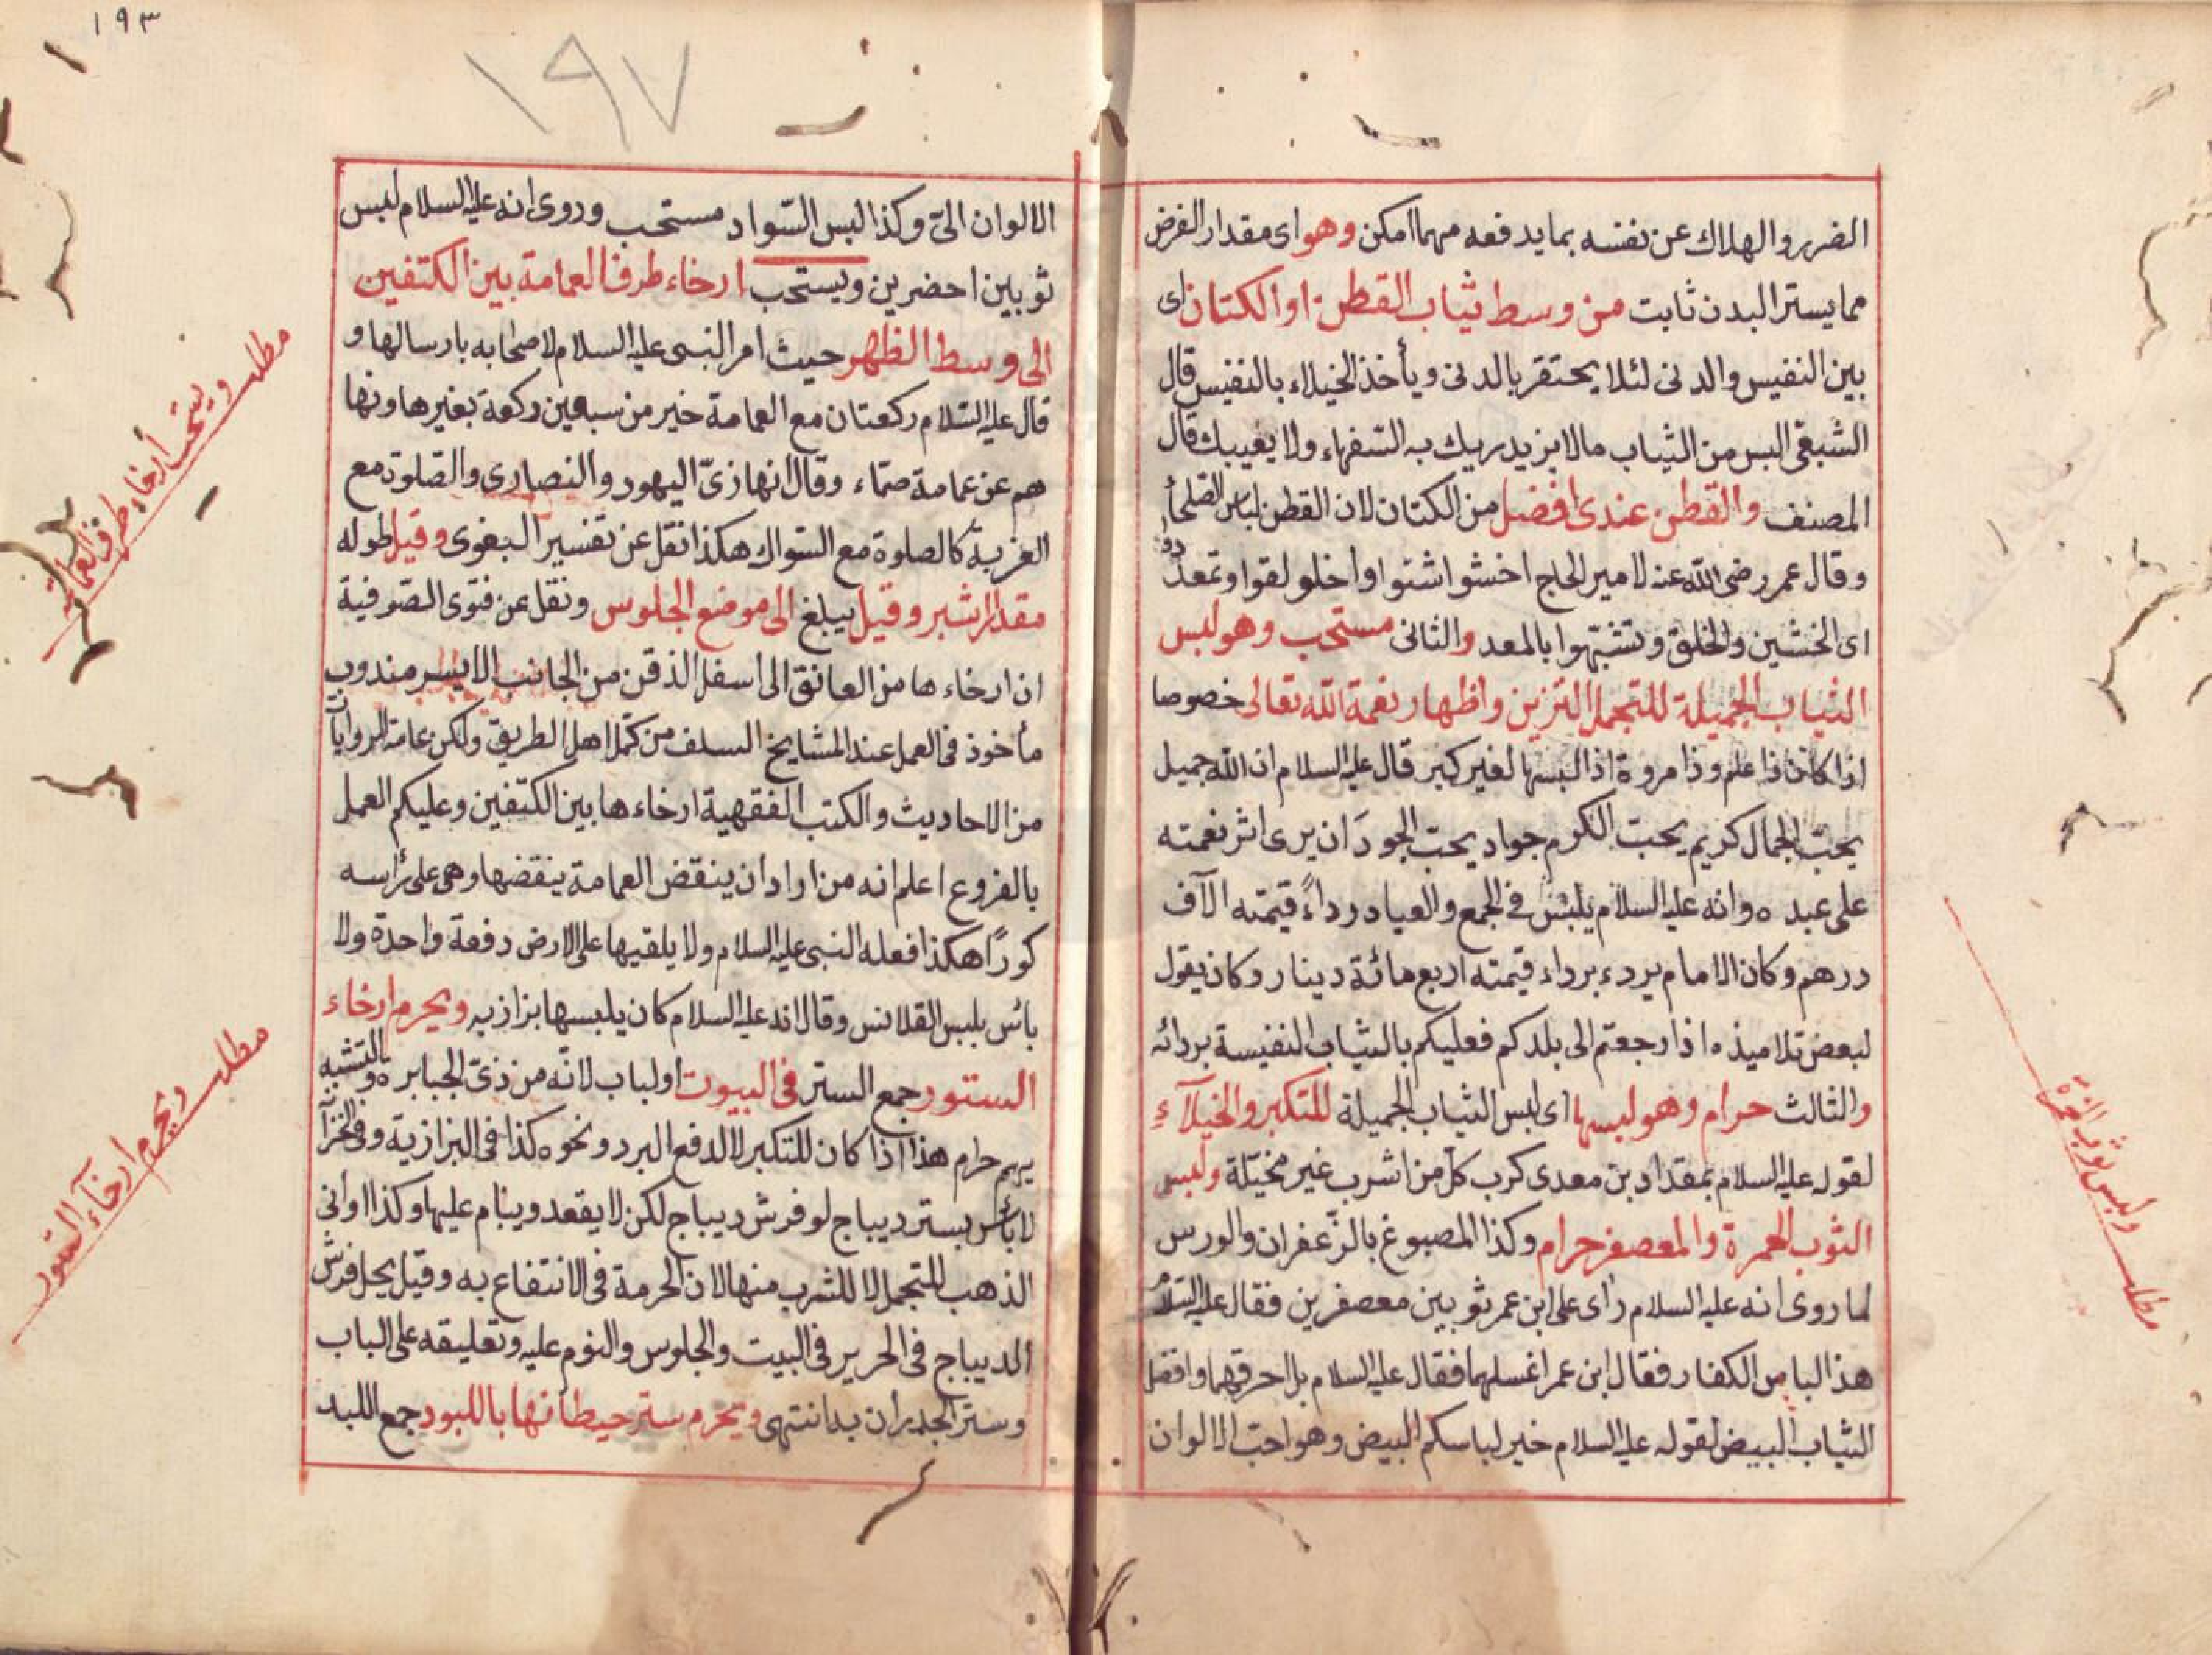 الضرر والهلاك عن نفسه بما يدفعه مهما امكن وهو اى مقدار الفرض
مما يستر البدن ثابت من وسط ثياب القطن او الكتان اى
بين النفيس والدنى لئلا يحتقر بالدنى ويأخذ الخيلاء بالنفيس قال
الشبعى البس من الثياب مالا يزيدريك به السفهاء ولا يعيبك قال
المصنف والقطن عندى افضل من الكتان لان القطن لباس الصلحاء
وقال عمر رضى الله عنه لامير الحاج اخشوا اشنوا واخلو لقوا وتمعددوا
اى الخشين والخلق وتشبهوا بالمعد والثانى مستحب وهو لبس
الثياب الجميلة للتجمل التزين واظهار نعمة الله تعالى خصوصا
اذا كان ذا علم وذا مروة اذا لبسها لغير كبر قال عليه السلام ان الله جميل
يحب الجمال كريم يحب الكرم جواد يحب الجود ان يرى اثر نعمته
على عبده وانه عليه السلام يلبس فى الجمع والعياد رداءً قيمته الآف
درهم وكان الامام يردء برداء قيمته اربع مائة دينار وكان يقول
لبعض تلاميذه اذا رجعتم الى بلدكم فعليكم بالثياب النفيسة بردائه
والثالث حرام وهو لبسها اى لبس الثياب الجميلة للتكبر والخيلآء
لقوله عليه السلام بمقداد بن معدى كرب كل من اشرب غير مخيّلة ولبس
الثوب الحمرة والمعصفر حرام وكذا المصبوغ بالزعفران والورس
لما روى انه عليه السلام رأى على ابن عمر ثوبين معصفرين فقال عليه السلام
هذا لباس الكفار فقال ابن عمر اغسلهما فقال عليه السلام بل احرقهما وافضل
الثياب البيض لقوله عليه السلام خير لباسكم البيض وهو احب الالوان
مطلب ولبس ثوب الحمرة
١٩٣
١٩٧
الالوان الىّ وكذا لبس السّواد مستحب وروى انه عليه السلام لبس
ثوبين احضرين ويستحب ارخاء طرف العمامة بين الكتفين
الى وسط الظهر حيث امر النبى عليه السلام لاصحابه بارسالها و
قال عليه السّلام ركعتان مع العمامة خير من سبعين ركعة بغيرها ونها
هم عن عمامة صمّاء وقال انها زىّ اليهود والنصارى والصلوة مع
العزبة كالصلوة مع السواك هكذا نقل عن تفسير البغوى وقيل طوله
مقدار شبر وقيل يبلغ الى موضع الجلوس ونقل عن فتوى الصّوفية
ان ارخاءها من العانق الى اسفل الذقن من الجانب الايسر مندوب
مأخوذ فى العمل عند المشايخ السلف من كمّل اهل الطريق ولكن عامة الروايات
من الاحاديث والكتب الفقهية ارخاءها بين الكتفين وعليكم العمل
بالفروع اعلم انه من اراد ان ينقض العمامة ينقضها وهى على رأسه
كورًا هكذا فعله النبى عليه السلام ولا يلقيها على الارض دفعة واحدة ولا
بائس بلبس القلانس وقال انه عليه السلام كان يلبسها بزازيه ويحرم ارخاء
الستور جمع الستر فى البيوت اولباب لانّه من ذىّ الجبابرة والتشبه
بهم حرام هذا اذا كان للتكبر لا لدفع البرد ونحوه كذا فى البزازية وفى الخزا
لا بأس بستر ديباج لو فرش ديباج لكن لا يقعد وينام عليها وكذا اوانى
الذهب للتجمل لا للشرب منها لان الحرمة فى الانتفاع به وقيل يحل فرش
الديباج فى الحرير فى البيت والجلوس والنوم عليه وتعليقه على الباب
وستر الجدران بدا نتهى ويحرم ستر حيطانها باللبود جمع اللبد
مطلب ويستحب ارخاء طرف العمامة
مطلب ويحرم ارخآء الستور